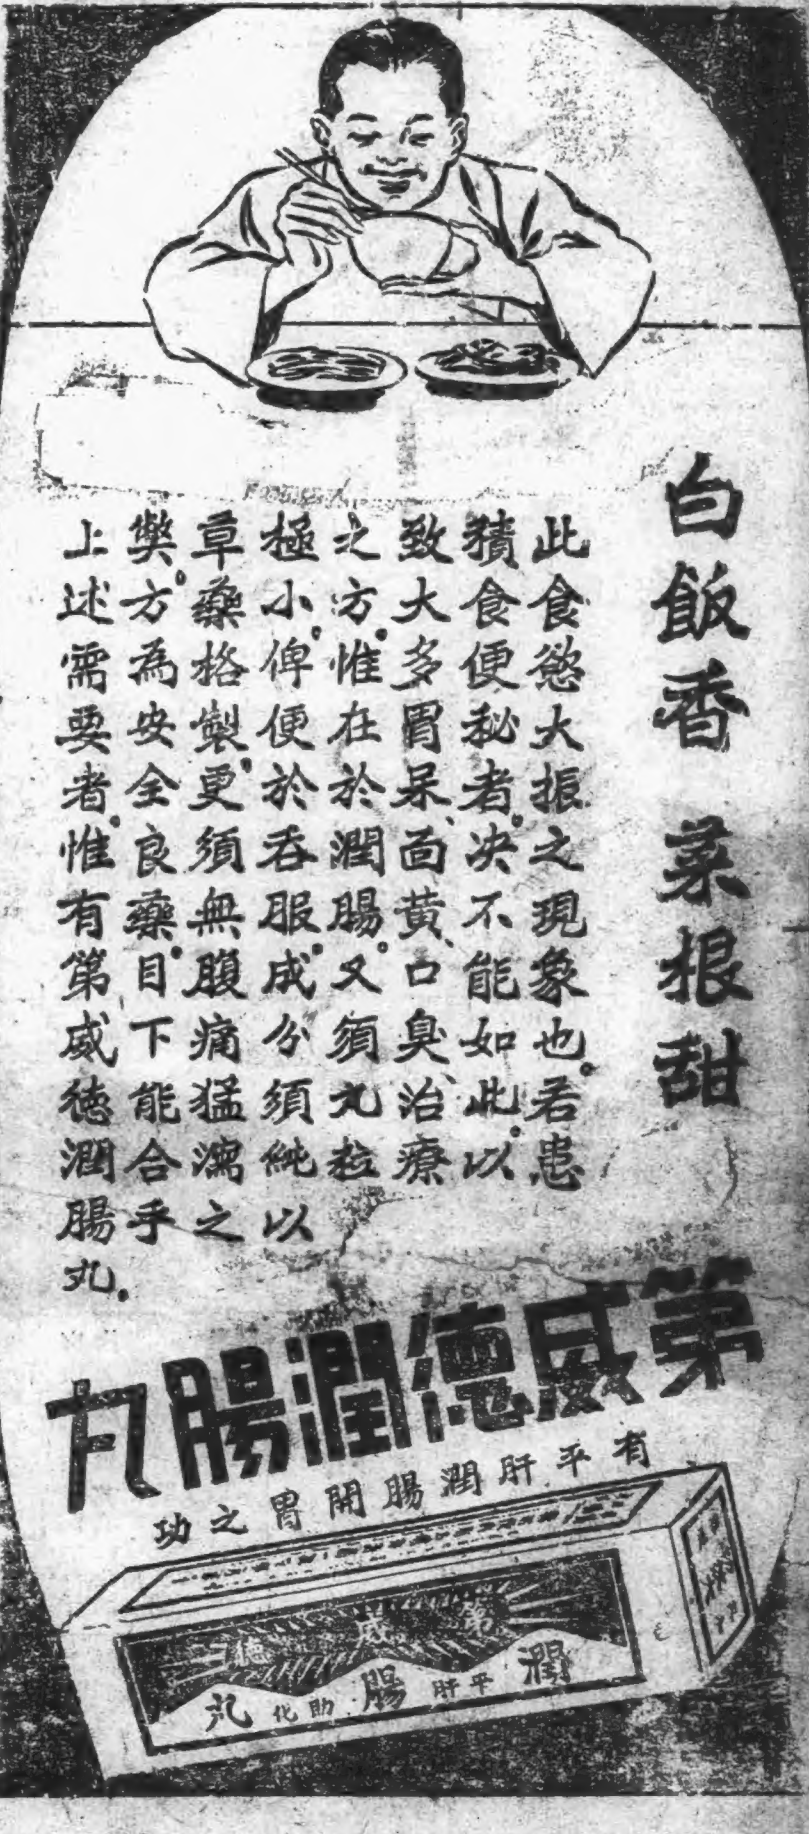 白飯香 菜根甜
此食慾大振之現象也。若患
積食便秘者。決不能如此。以
致大多胃呆、面黃、口臭、治療
之方。惟在於潤腸。又須丸粒
極小。俾便於吞服。成分須純以
草藥格製。更須無腹痛猛瀉之
弊。方為安全良藥。目下能合乎
上述需要者。惟有第威德潤腸丸。
第威德潤腸丸
有平肝潤腸開胃之功
第威德
潤腸丸
平肝
助化